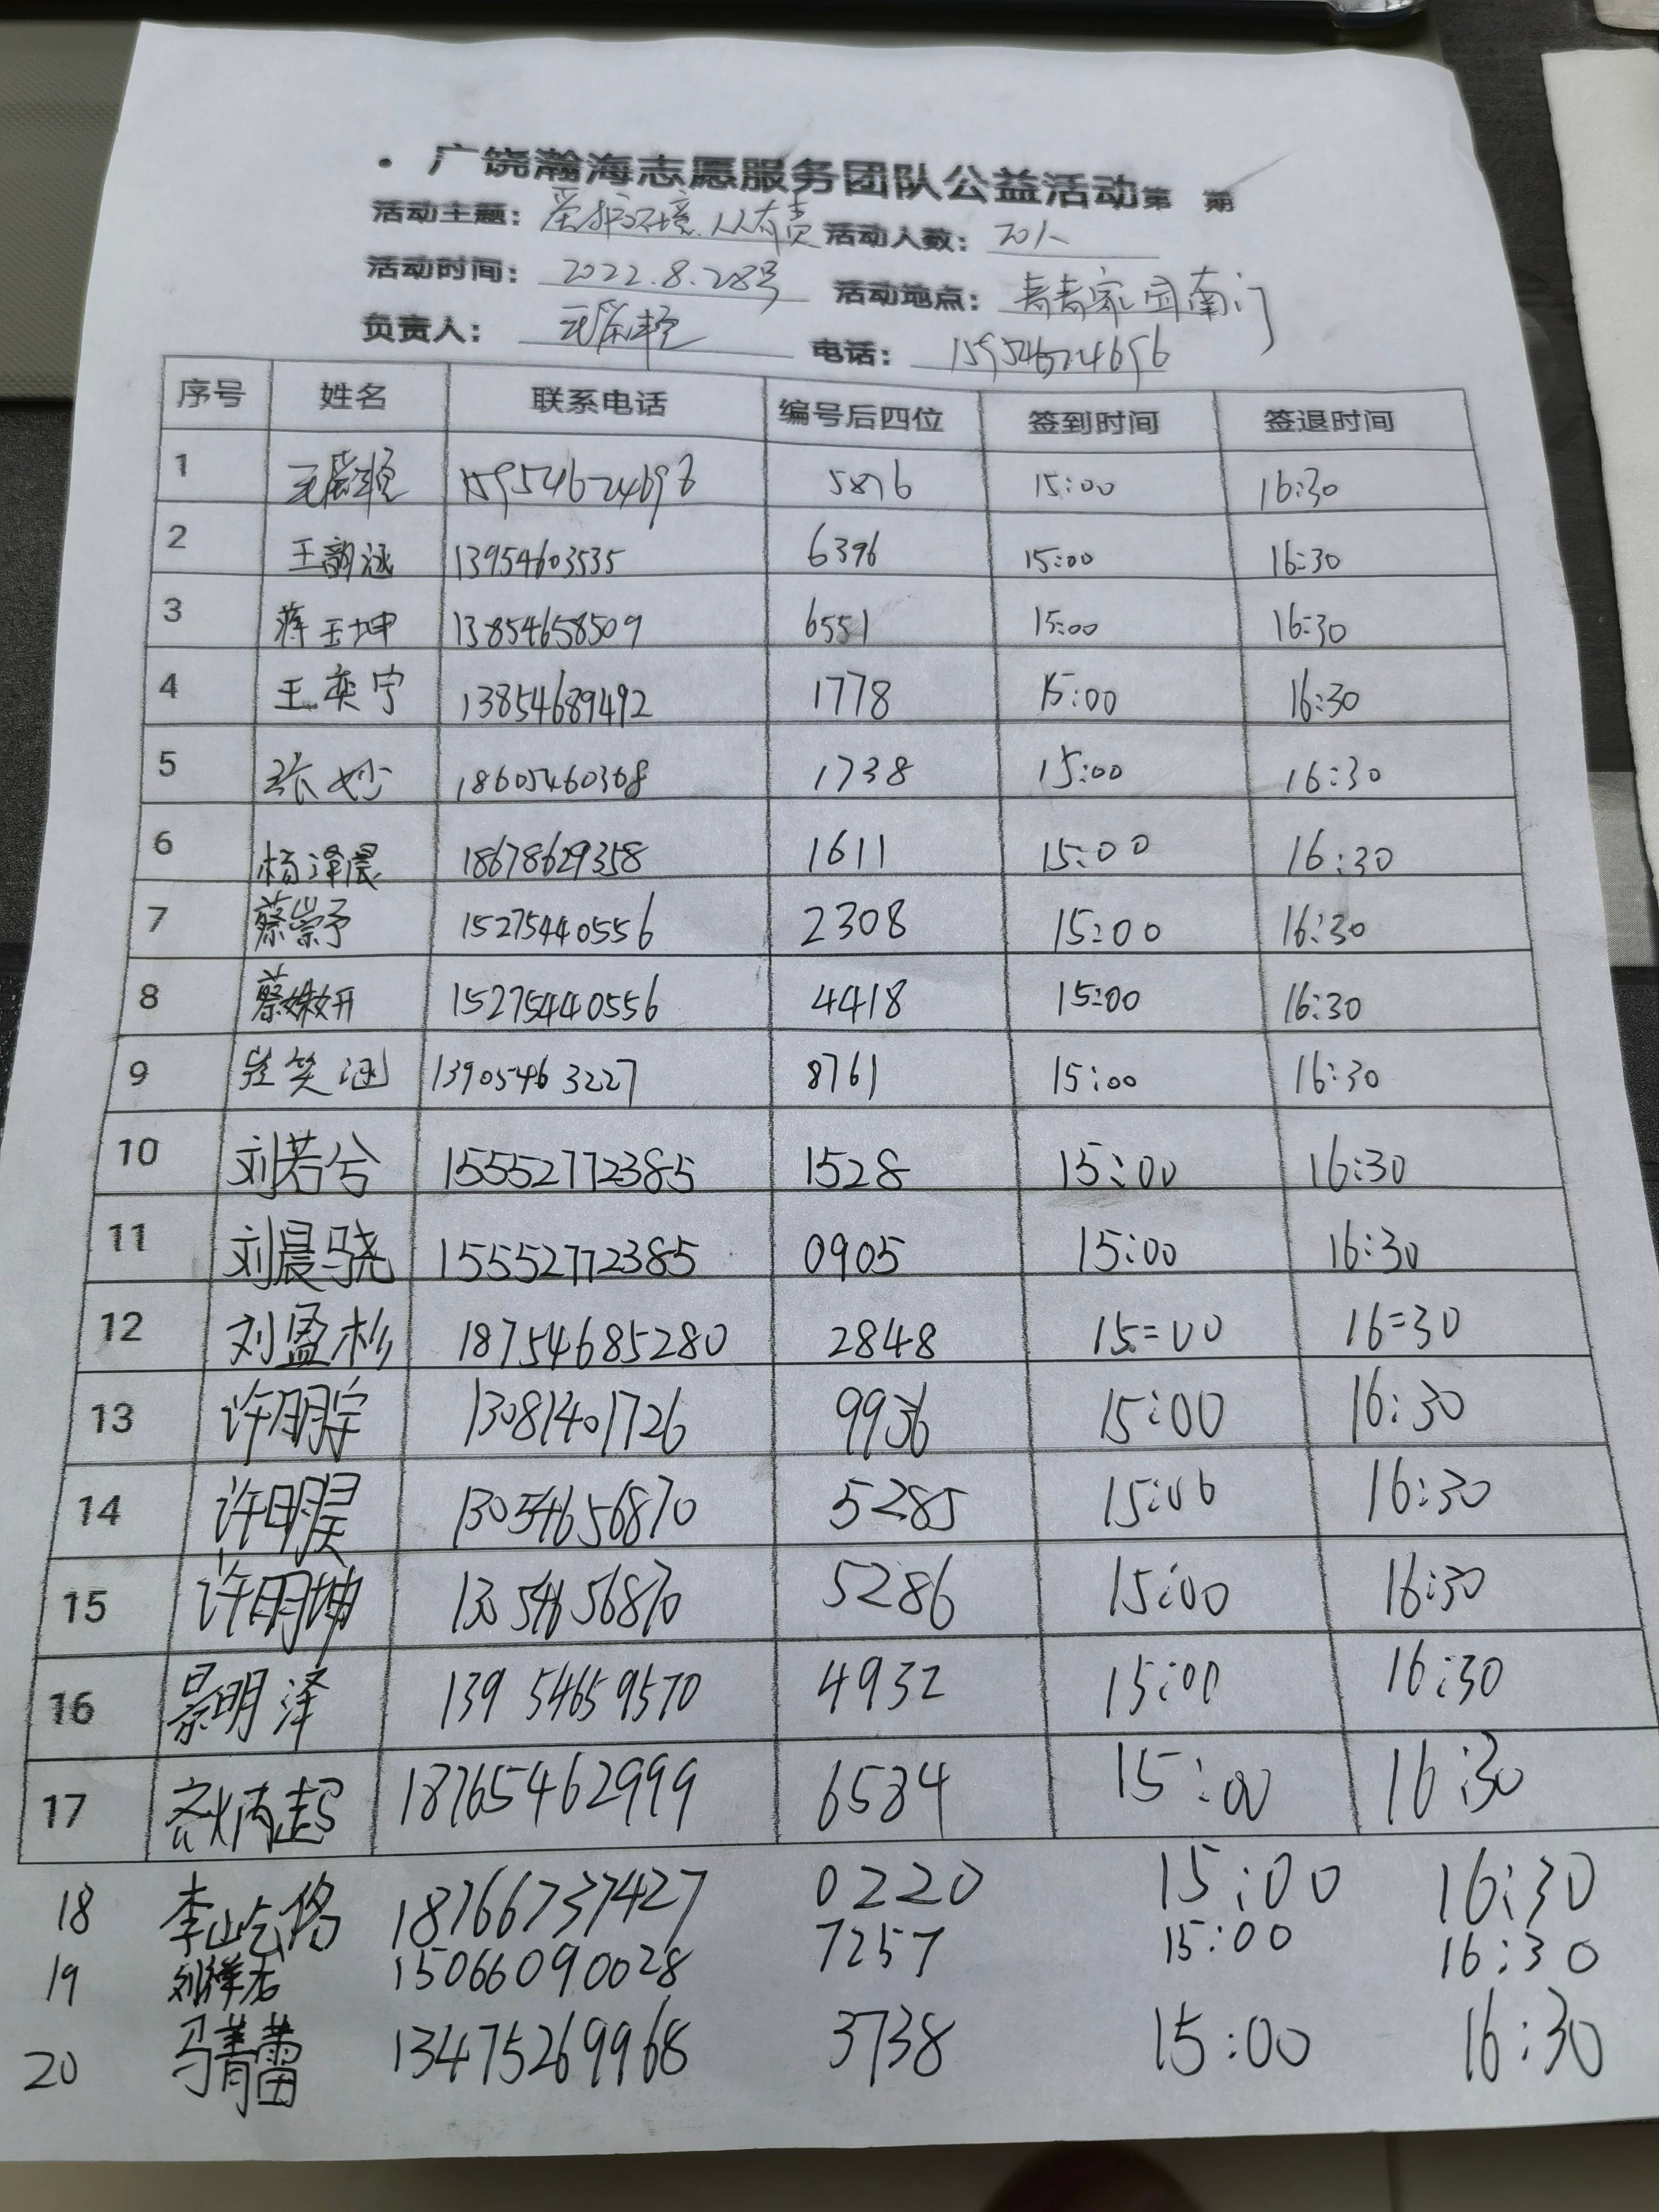 · 广饶瀚海志愿服务团队公益活动第 期
活动主题: 爱护环境.人人有责 活动人数: 20人
活动时间: 2022.8.28号 活动地点: 青青家园南门
负责人: 电话: 15954624696
序号 姓名 联系电话 编号后四位 签到时间 签退时间
1 15954624696 5876 15:00 16:30
2 王韵涵 13954603535 6396 15:00 16:30
3 蒋玉坤 13854658509 6551 15:00 16:30
4 王奕宁 13854689492 1778 15:00 16:30
5 张妙 18605460368 1738 15:00 16:30
6 杨泽晨 18678629358 1611 15:00 16:30
7 蔡崇予 15275440556 2308 15:00 16:30
8 蔡嫩妍 15275440556 4418 15:00 16:30
9 崔笑涵 13905463227 8761 15:00 16:30
10 刘若兮 15552772385 1528 15:00 16:30
11 刘晨骁 15552772385 0905 15:00 16:30
12 刘盈杉 18754685280 2848 15=00 16=30
13 许明宇 13081401726 9936 15:00 16:30
14 许明昊 13054656870 5285 15:00 16:30
15 许明坤 13054656870 5286 15:00 16:30
16 景明泽 13954659570 4932 15:00 16:30
17 炳起 18765462999 6534 15:00 16:30
18 李 18766737427 0220 15:00 16:30
19 刘祥 15066090028 7257 15:00 16:30
20 马菁蕾 13475269968 3738 15:00 16:30